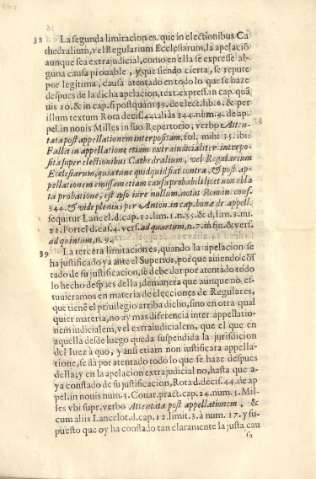 38 La segunda limitacion es, que in electionibus Ca
thedralium, vel Regularium Ecclesiarum, la apelació
aunque sea extrajudicial, como en ella se exprese al-
guna causa prouable, y que siendo cierta, se repute
por legitima, causa atentado en todo lo que se haze
despues de la dicha apelacion, text. expres. in cap. quā
uis 20. & in cap. si postquam 39. de elect. lib. 6. & per
illum textum Rota decis. 44. aliàs 344. num. 4. de ap-
pel. in nouis Milles in suo Repertorio, verbo Atten-
tata post appellationem interpositam, fol. mihi 35. ibi:
Fallit in appellatione etiam extraiudicialiter interpo-
sita super electionibus Cathedralium, vel Regularium
Ecclesiarum, quæ tunc quidquid fiat contra, & post ap-
pellationem eiusdem etiam causa probabili, licet non illa
ta probatione, est ipso iure nullum, notat Roman. cons.
344. & vide plenius per Anton. in cap. bonæ de appell.
sequitur Lancel. d. cap. 12. lim. 1. n. 55. & d. lim. 3. nu.
22. Portel. d. cas. 4. vers. ad quartum, n. 7. in fin. & vers.
ad quintum, n. 9.
39 La tercera limitacion es, quando la apelacion se
ha justificado ya ante el Superior, porque auiendo cōs
tado de su justificacion, se debe dar por atentado todo
lo hecho despues della, de manera que aunque no es-
tuuieramos en materia de elecciones de Regulares,
que tienē el priuilegio arriba dicho, sino en otra qual
quier materia, no ay mas diferencia inter appellatio-
nem iudicialem, vel extraiudicialem, que el que en
aquella desde luego queda suspendida la jurisdicion
del Iuez à quo, y ansi etiam non iustificata appella-
tione, se dà por atentado todo lo que se haze despues
della; y en la apelacion extrajudicial no, hasta que a-
ya constado de su justificacion, Rota d. decis. 44. de ap
pel. in nouis num. 5. Couar. pract. cap. 24. num. 5. Mil-
les vbi supr. verbo Attentata post appellationem, &
cum aliis Lancelot. d. cap. 12. limit. 3. à num. 17. y su-
puesto que oy ha constado tan claramente la justa cau